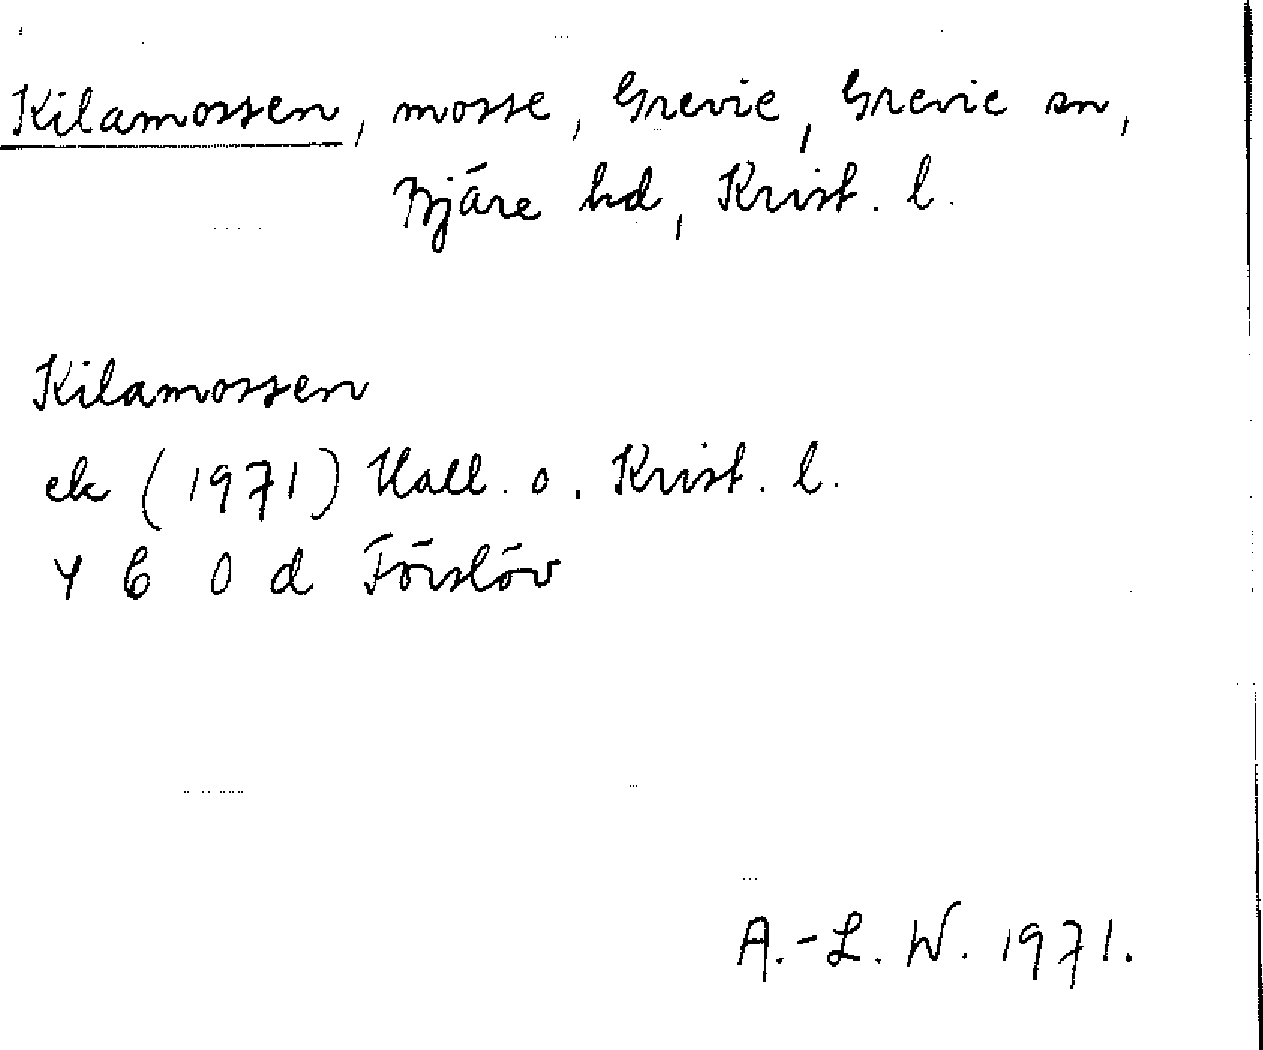 Kilamossen, mosse, Grevie, Grevie sn,
Bjäre hd, Krist. l.
Kilamossen
ek (1971) Hall. o. Krist. l.
4 C 0 d Förslöv
A.-L. W. 1971.